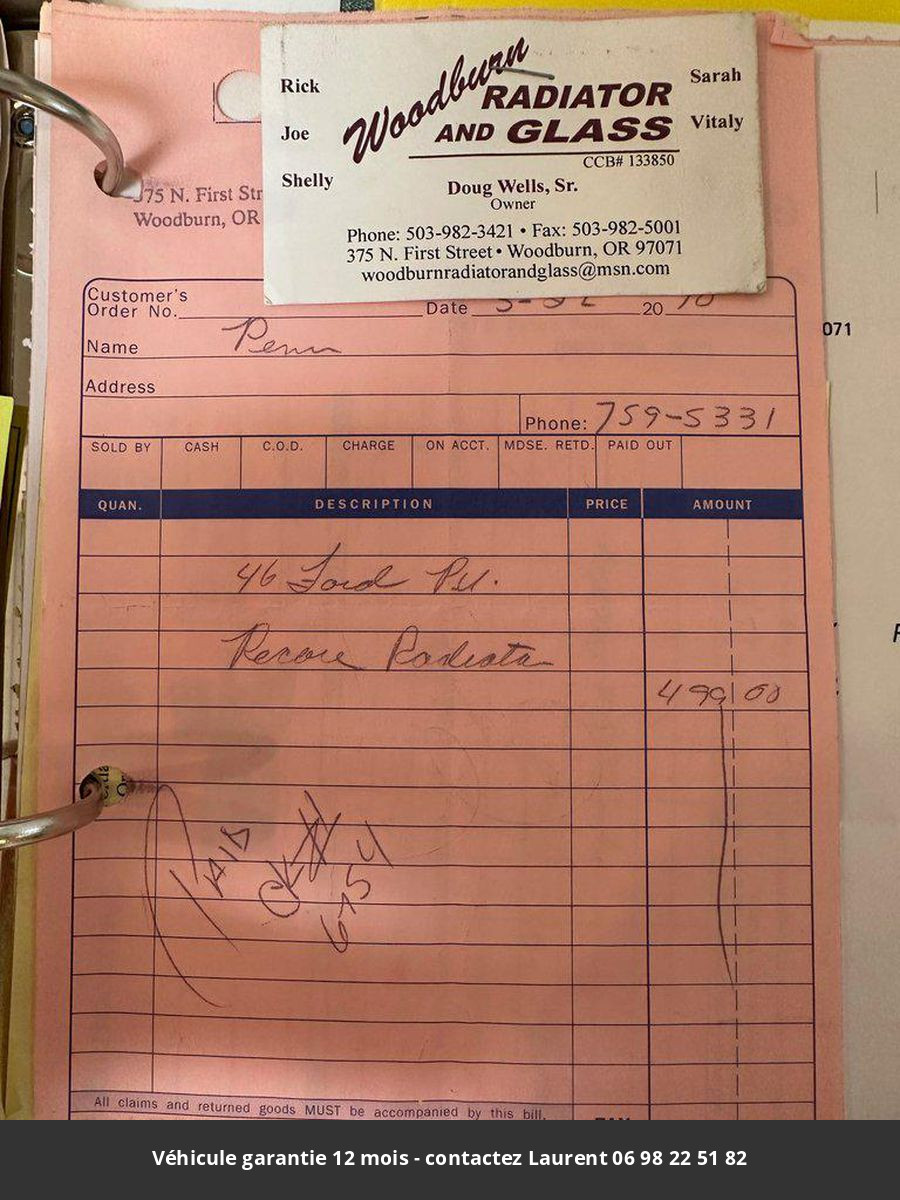 Rick
Joe
Shelly
Woodburn
RADIATOR
AND GLASS
CCB# 133850
Sarah
Vitaly
Doug Wells, Sr.
Owner
Phone: 503-982-3421 • Fax: 503-982-5001
375 N. First Street • Woodburn, OR 97071
woodburnradiatorandglass@msn.com
375 N. First Str
Woodburn, OR
071
Customer's
Order No. Date 20 10
Name Penn
Address
Phone: 759-5331
SOLD BY CASH C.O.D. CHARGE ON ACCT. MDSE. RETD. PAID OUT
QUAN. DESCRIPTION PRICE AMOUNT
46 Ford P.U.
Recore Radiator
499 00
PAID
CK#
6754
All claims and returned goods MUST be accompanied by this bill.
Véhicule garantie 12 mois - contactez Laurent 06 98 22 51 82